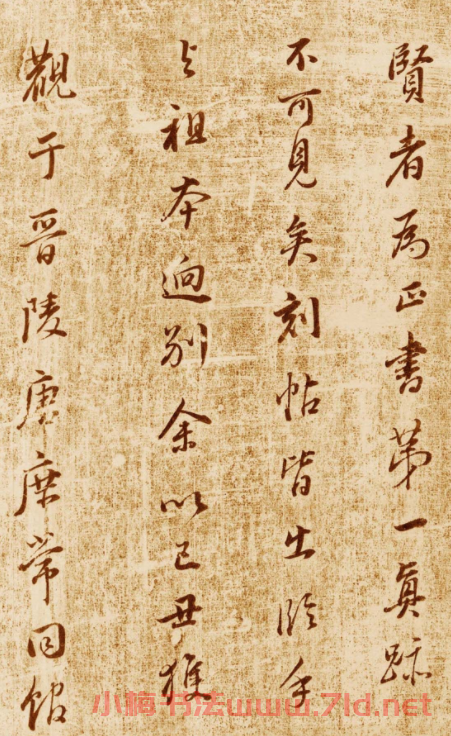 賢者為正書第一真跡
不可見矣刻帖皆出臨手
與祖本迥別余以己丑獲
觀于晉陵唐庶常同館
小梅书法www.7ld.net